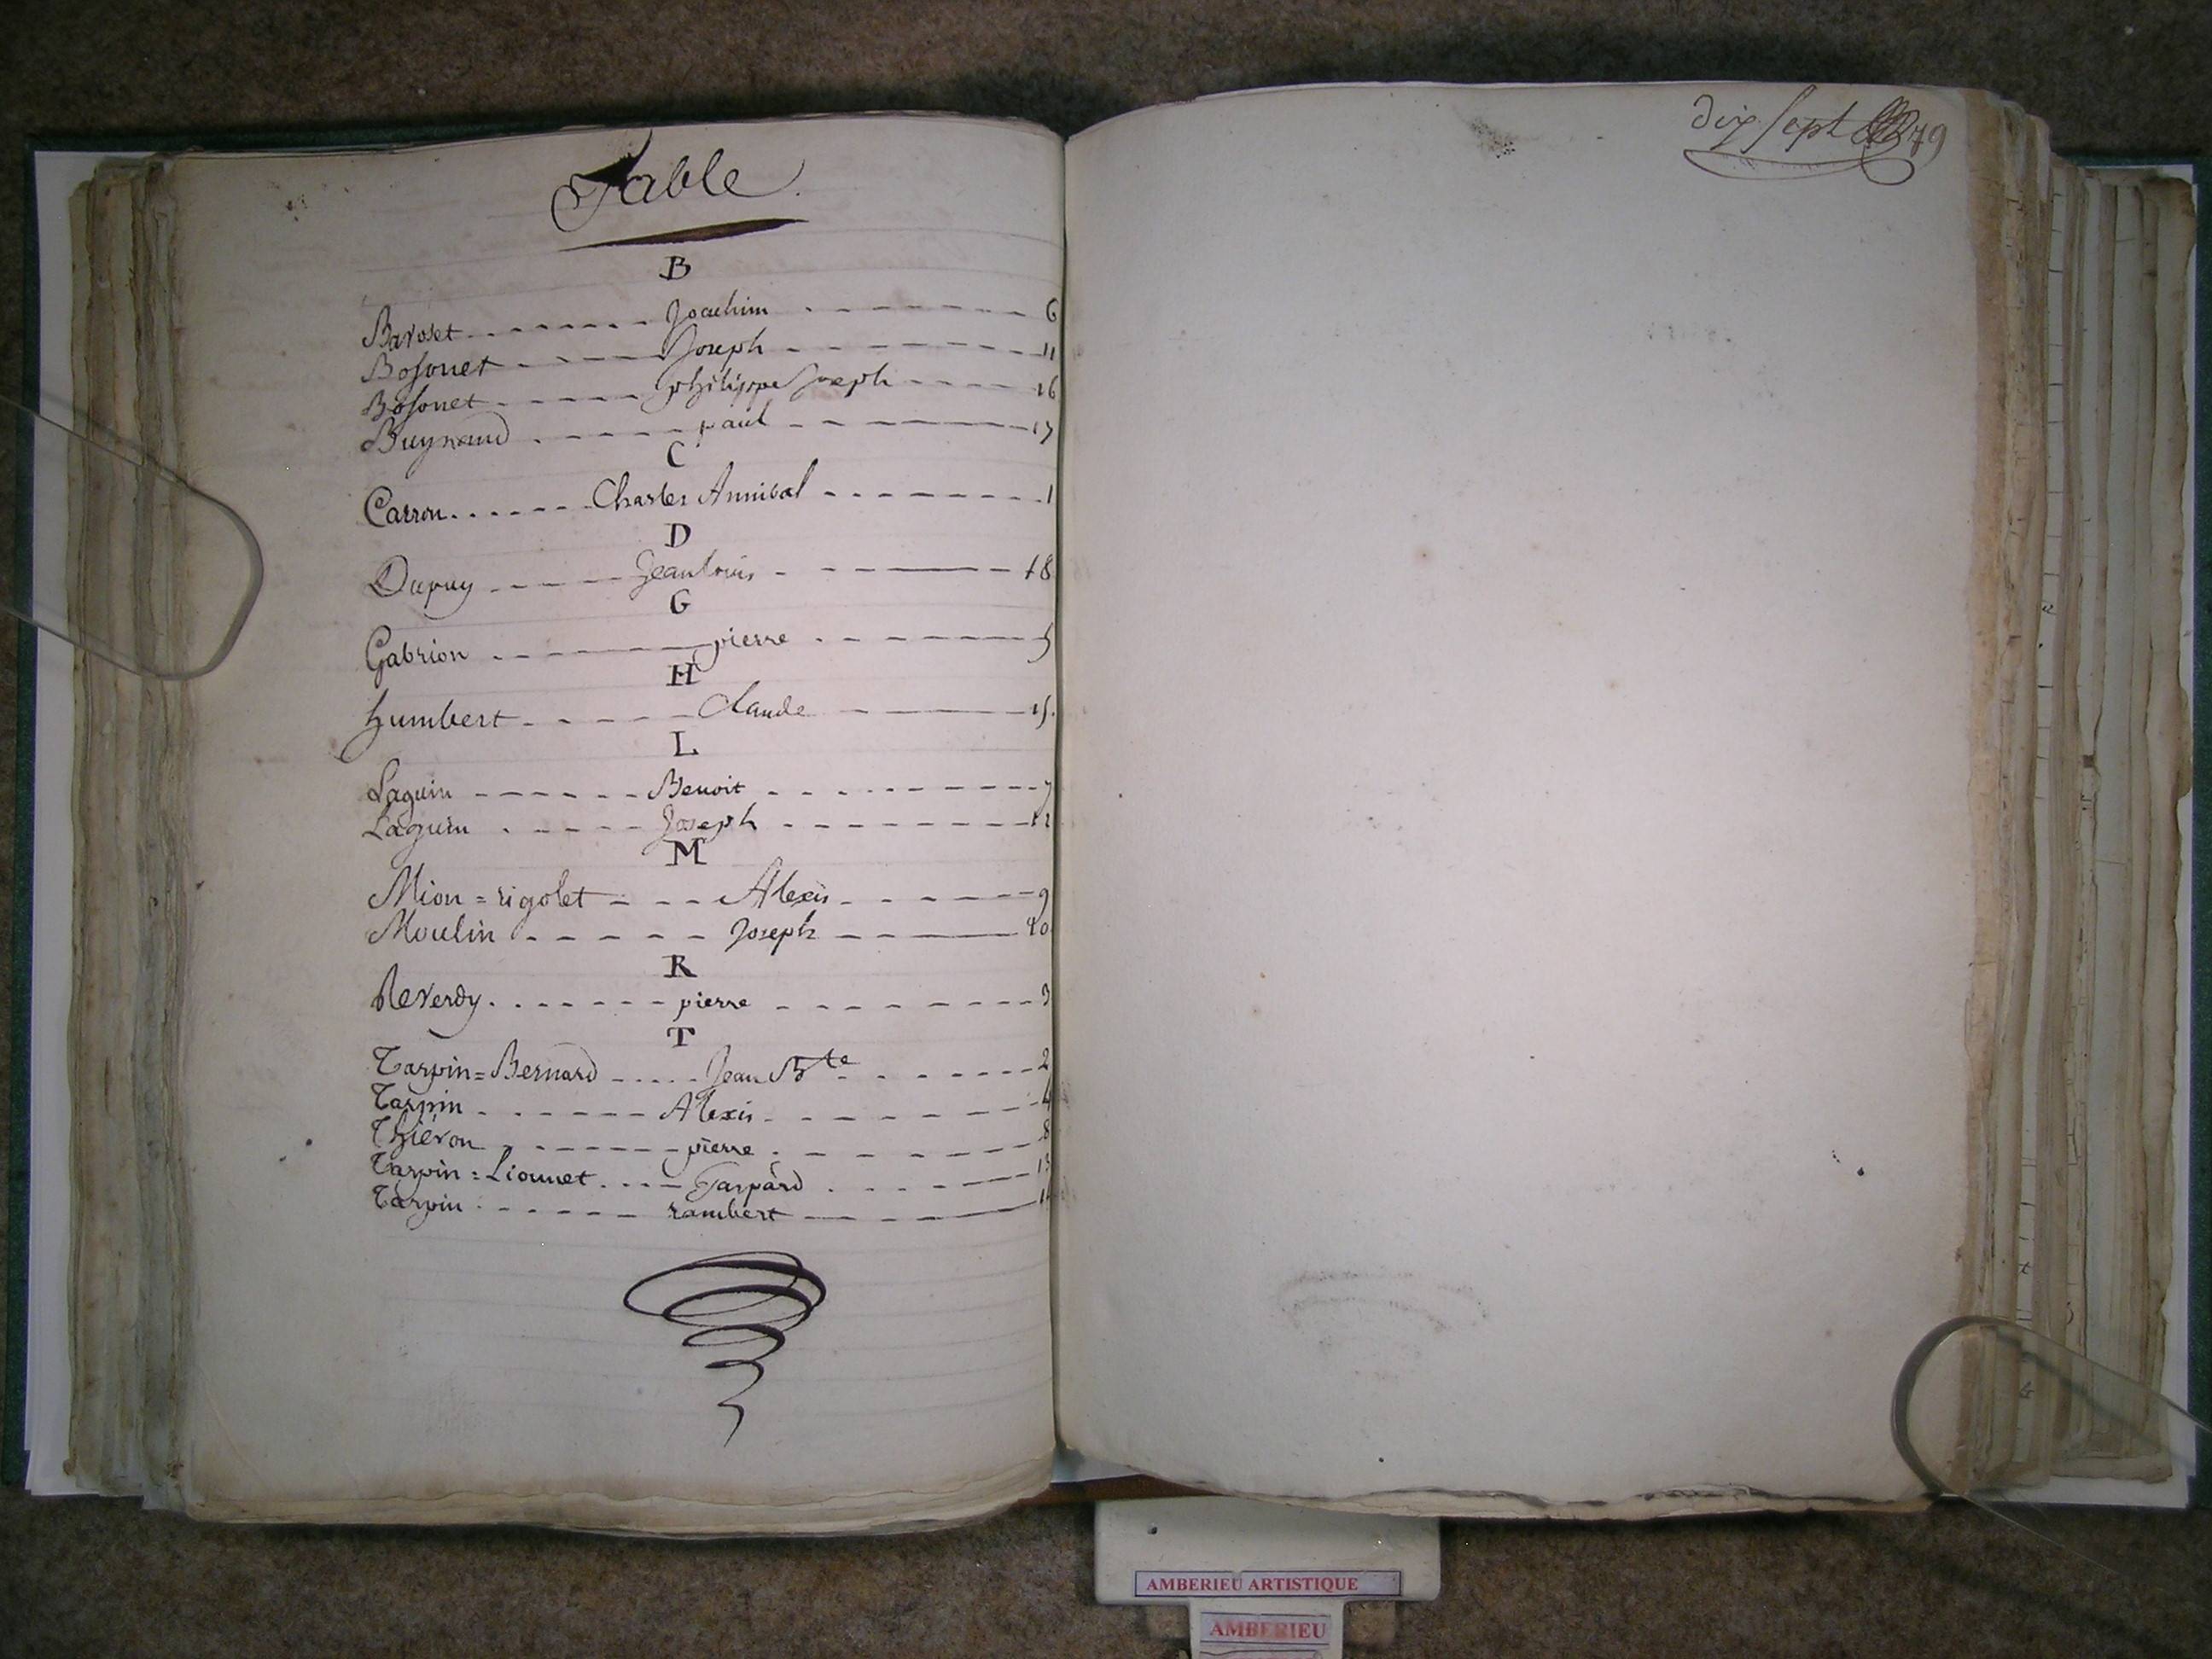 Table.
B
Baroset - - - - - - - Joachim - - - - - - - 6
Bosonet - - - - - Joseph - - - - - - - 11
Bosonet - - - - - - philippe Joseph - - - - 16
Buynand - - - - - paul - - - - - - - 17
C
Carron - - - - - - - Charles Annibal - - - - - - - 1
D
Dupuy - - - - - Jean Louis - - - - - 18
G
Gabrion - - - - - pierre - - - - - - 5
H
humbert - - - - - Claude - - - - 15.
L
Laguin - - - - - - Benoit - - - - - - - 7
Laguin - - - - - Joseph - - - - - - - 12
M
Mion = rigolet - - - - Alexis - - - - - - 9
Moulin - - - - - - Joseph - - - - 10
R
Reverdy - - - - - - - pierre - - - - - - - 3
T
Tarpin = Bernard - - - - - Jean Bte - - - - - - 2
Tarpin - - - - - - - Alexis - - - - - - - 4
Thiéron - - - - - - - pierre - - - - - - 8
Tarpin = Lionnet - - - - Gaspard - - - - - 13
Tarpin - - - - - - rambert - - - - 14
dix sept 79
AMBERIEU ARTISTIQUE
AMBERIEU